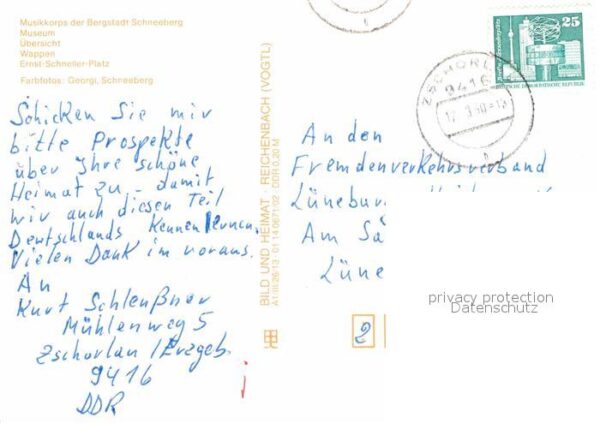 Musikkorps der Bergstadt Schneeberg
Museum
Übersicht
Wappen
Ernst-Schneller-Platz
Farbfotos: Georgi, Schneeberg
Schicken Sie mir
bitte Prospekte
über Ihre schöne
Heimat zu, damit
wir auch diesen Teil
Deutschlands kennen lernen.
Vielen Dank im voraus.
An
Kurt Schleußner
Mühlenweg 5
Zschorlau/Erzgeb.
9416
DDR
BILD UND HEIMAT REICHENBACH (VOGTL)
A1/III/26/13 01 14 0671/02 DDR 0,20 M
25
DEUTSCHE DEMOKRATISCHE REPUBLIK
ZSCHORLAU
9416
An den
Fremdenverkehrsverband
Am
Lüne
privacy protection
Datenschutz
2